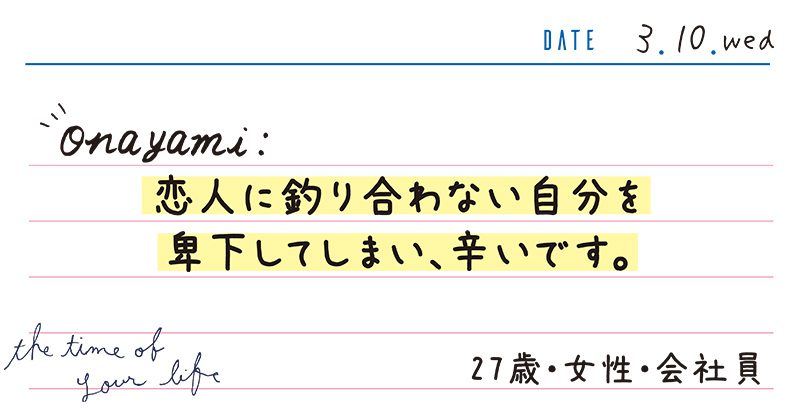 DATE 3.10.wed
Onayami:
恋人に釣り合わない自分を
卑下してしまい、辛いです。
the time of
your life
27歳・女性・会社員